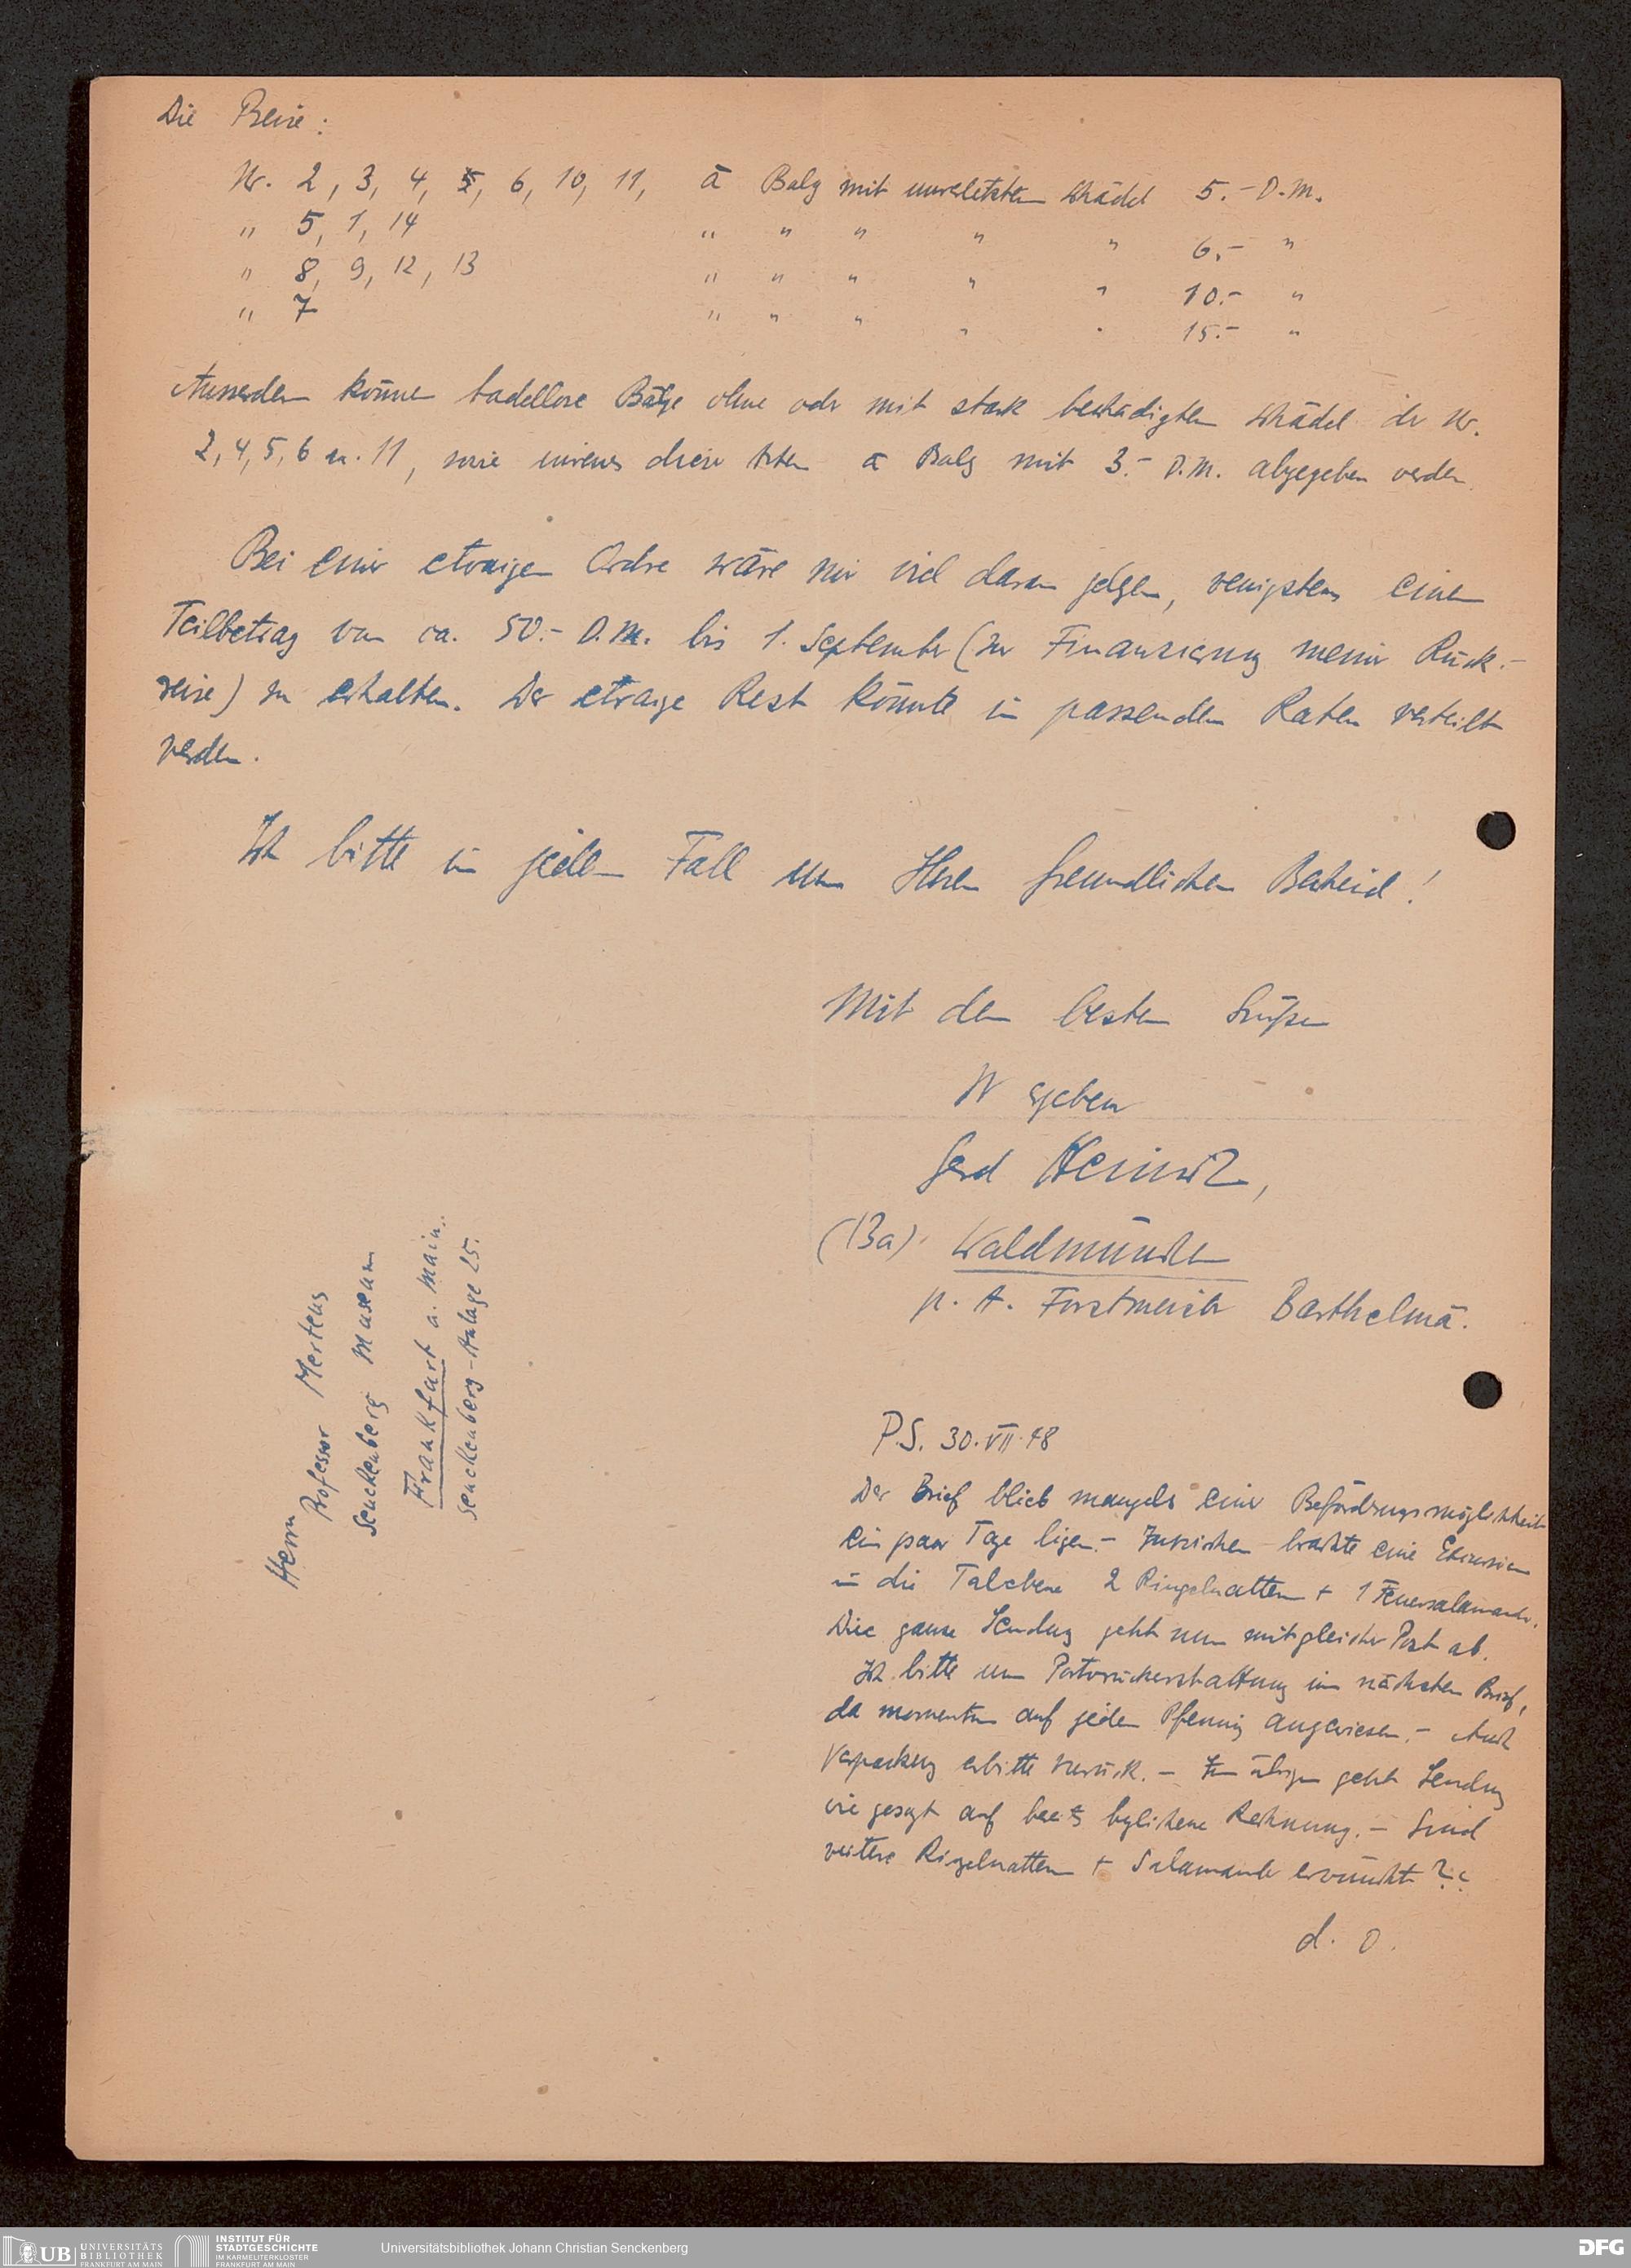 Die Preise:
Nr. 2, 3, 4, 5, 6, 10, 11, à Balg mit unverletztem Schädel 5.- D.M.
" 5, 1, 14 " " " " " 6,- "
" 8, 9, 12, 13 " " " " " 10.- "
" 7 " " " " " 15.- "
Ausserdem können tadellose Bälge ohne oder mit stark beschädigtem Schädel der Nr.
2, 4, 5, 6 u. 11, sowie diese Arten à Balg mit 3.- D.M. abgegeben werden.
Bei einer etwaigen Ordre wäre mir viel daran gelegen, wenigstens einen
Teilbetrag von ca. 50.- D.M. bis 1. September (zur Finanzierung meiner Rück-
reise) zu erhalten. Der etwaige Rest könnte in passenden Raten verteilt
werden.
Ich bitte in jedem Fall um Ihren freundlichen Bescheid!
Mit den besten Grüßen
Ihr ergebener
Gerd Heinrich,
(13a) Waldmünchen
p. A. Forstmeister Barthelmä.
Herrn
Professor Mertens
Senckenberg Museum
Frankfurt a. Main.
Senckenberg-Anlage 25.
P.S. 30.VII.48
Der Brief blieb mangels einer Beförderungsmöglichkeit
ein paar Tage liegen.- Inzwischen brachte eine Excursion
in die Talebene 2 Ringelnattern + 1 Feuersalamander.
Die ganze Sendung geht nun mit gleicher Post ab.
Ich bitte um Portorückerstattung im nächsten Brief,
da momentan auf jeden Pfennig angewiesen.- Auch
Verpackung erbitte zurück.- Im übrigen geht Sendung
wie gesagt auf bereits beglichene Rechnung.- Sind
weitere Ringelnattern + Salamander erwünscht??
d. O.
UB UNIVERSITÄTS
BIBLIOTHEK
FRANKFURT AM MAIN
INSTITUT FÜR
STADTGESCHICHTE
IM KARMELITERKLOSTER
FRANKFURT AM MAIN
Universitätsbibliothek Johann Christian Senckenberg
DFG